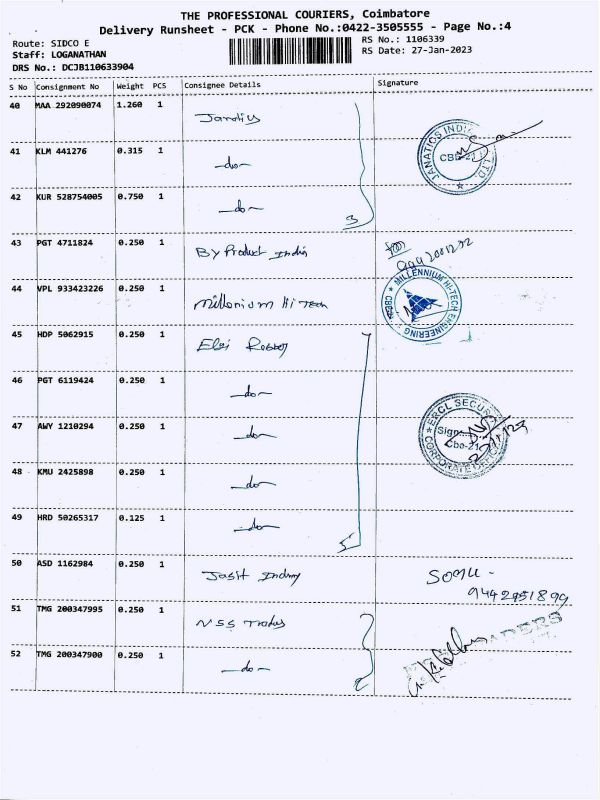 THE PROFESSIONAL COURIERS, Coimbatore
Delivery Runsheet - PCK - Phone No.:0422-3505555 - Page No.:4
Route: SIDCO E
Staff: LOGANATHAN
DRS No.: DCJB110633904
RS No.: 1106339
RS Date: 27-Jan-2023
S No Consignment No Weight PCS Consignee Details Signature
40 MAA 292090074 1.260 1
JANATICS INDIA LTD.
CBE-21
41 KLM 441276 0.315 1 -do-
42 KUR 528754005 0.750 1 -do-
3
43 PGT 4711824 0.250 1 By Product India
44 VPL 933423226 0.250 1 Millenium Hi Tech
MILLENNIUM HI-TECH ENGINEERING
45 HDP 5062915 0.250 1 Elgi
46 PGT 6119424 0.250 1 -do-
47 AWY 1210294 0.250 1 -do-
ERCL SECURITY
Sign
Cbe-21
CORPORATE OFFICE
48 KMU 2425898 0.250 1 -do-
49 HRD 50265317 0.125 1 -do-
5
50 ASD 1162984 0.250 1
51 TMG 200347995 0.250 1 NSS Traders
52 TMG 200347900 0.250 1 -do-
2